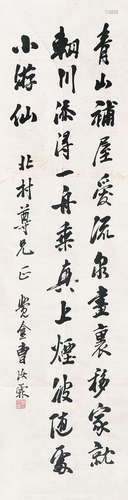 青山補屋愛流泉畫裏移家就
輞川添得一舟乘真上煙波隨處
小游仙
北村尊兄正 覺盦曹汝霖